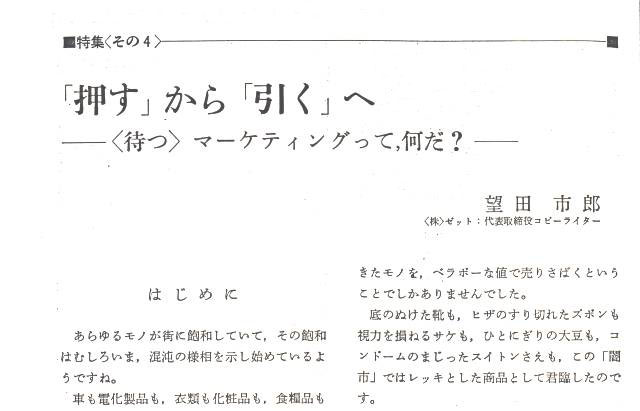 ■特集〈その4〉■
「押す」から「引く」へ
――〈待つ〉マーケティングって,何だ?――
望田市郎
〈株〉ゼット:代表取締役コピーライター
はじめに
あらゆるモノが街に飽和していて,その飽和
はむしろいま,混沌の様相を示し始めているよ
うですね。
車も電化製品も,衣類も化粧品も,食糧品も
きたモノを,ベラボーな値で売りさばくという
ことでしかありませんでした。
底のぬけた靴も,ヒザのすり切れたズボンも
視力を損ねるサケも,ひとにぎりの大豆も,コ
ンドームのまじったスイトンさえも,この「闇
市」ではレッキとした商品として君臨したので
す。